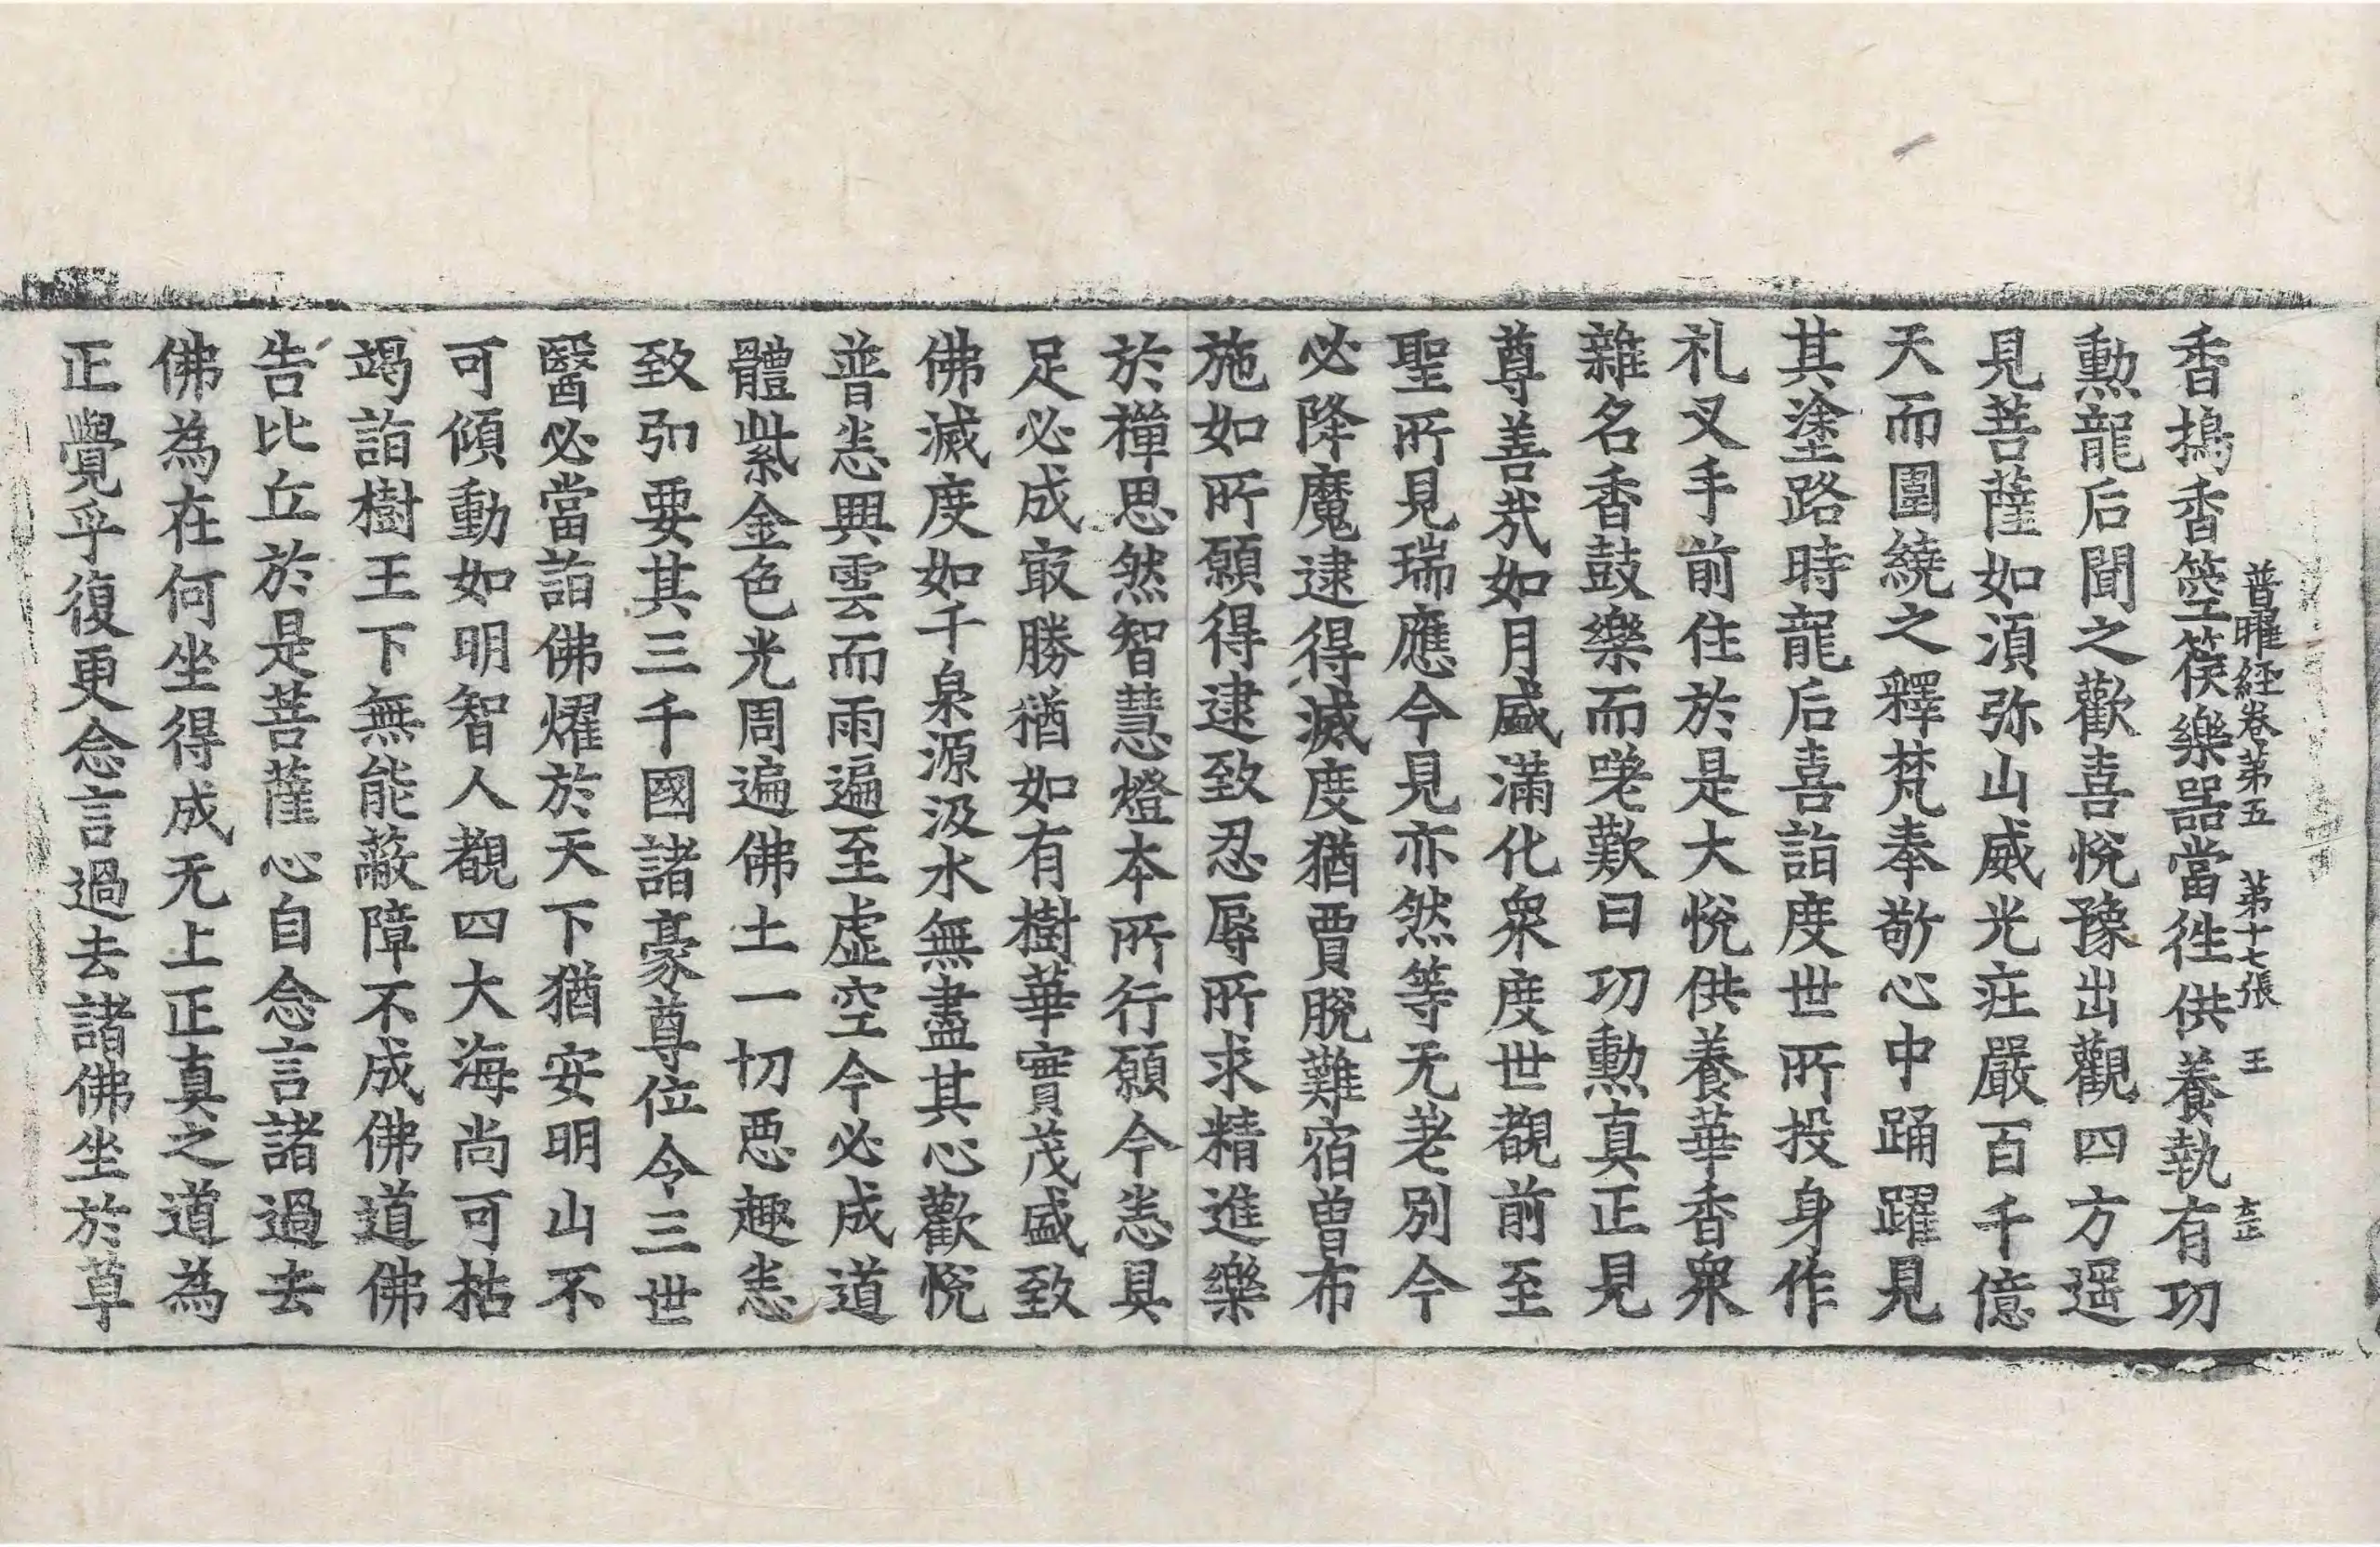 普曜経卷第五　第十七張　王　去正
香擣香箜篌樂器當徃供養執有功
勲龍后聞之歡喜恱豫出觀四方遥
見菩薩如湏弥山威光㽵嚴百千億
天而圍繞之釋梵奉敬心中踊躍見
其塗路時龍后喜詣度世所投身作
礼叉手前住於是大恱供養華香衆
雜名香鼓樂而嗟歎曰功勲真正見
尊善㢤如月盛滿化衆度世覩前至
聖所見瑞應今見亦然等无差別今
必降魔逮得滅度猶賈脫難宿曽布
施如所願得逮致忍辱所求精進樂
於禪思然智慧燈本所行願今悉具
足必成㝡勝猶如有樹華實茂盛致
佛滅度如千泉源汲水無盡其心歡恱
普悉興雲而雨遍至虛空今必成道
體紫金色光周遍佛土一切惡趣悉
致𢎢要其三千國諸豪尊位令三世
醫必當詣佛燿於天下猶安明山不
可傾動如明智人覩四大海尚可枯
竭詣樹王下無能蔽障不成佛道佛
告比丘於是菩薩心自念言諸過去
佛為在何坐得成无上正真之道為
正覺乎復更念言過去諸佛坐於草